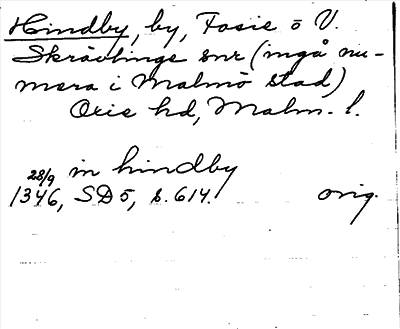 Hindby, by, Fosie o V.
Skrävlinge snr (ingå nu-
mera i Malmö stad)
Oxie hd, Malm. l.
in hindby
28/9
1346, SD 5, s. 614. orig.